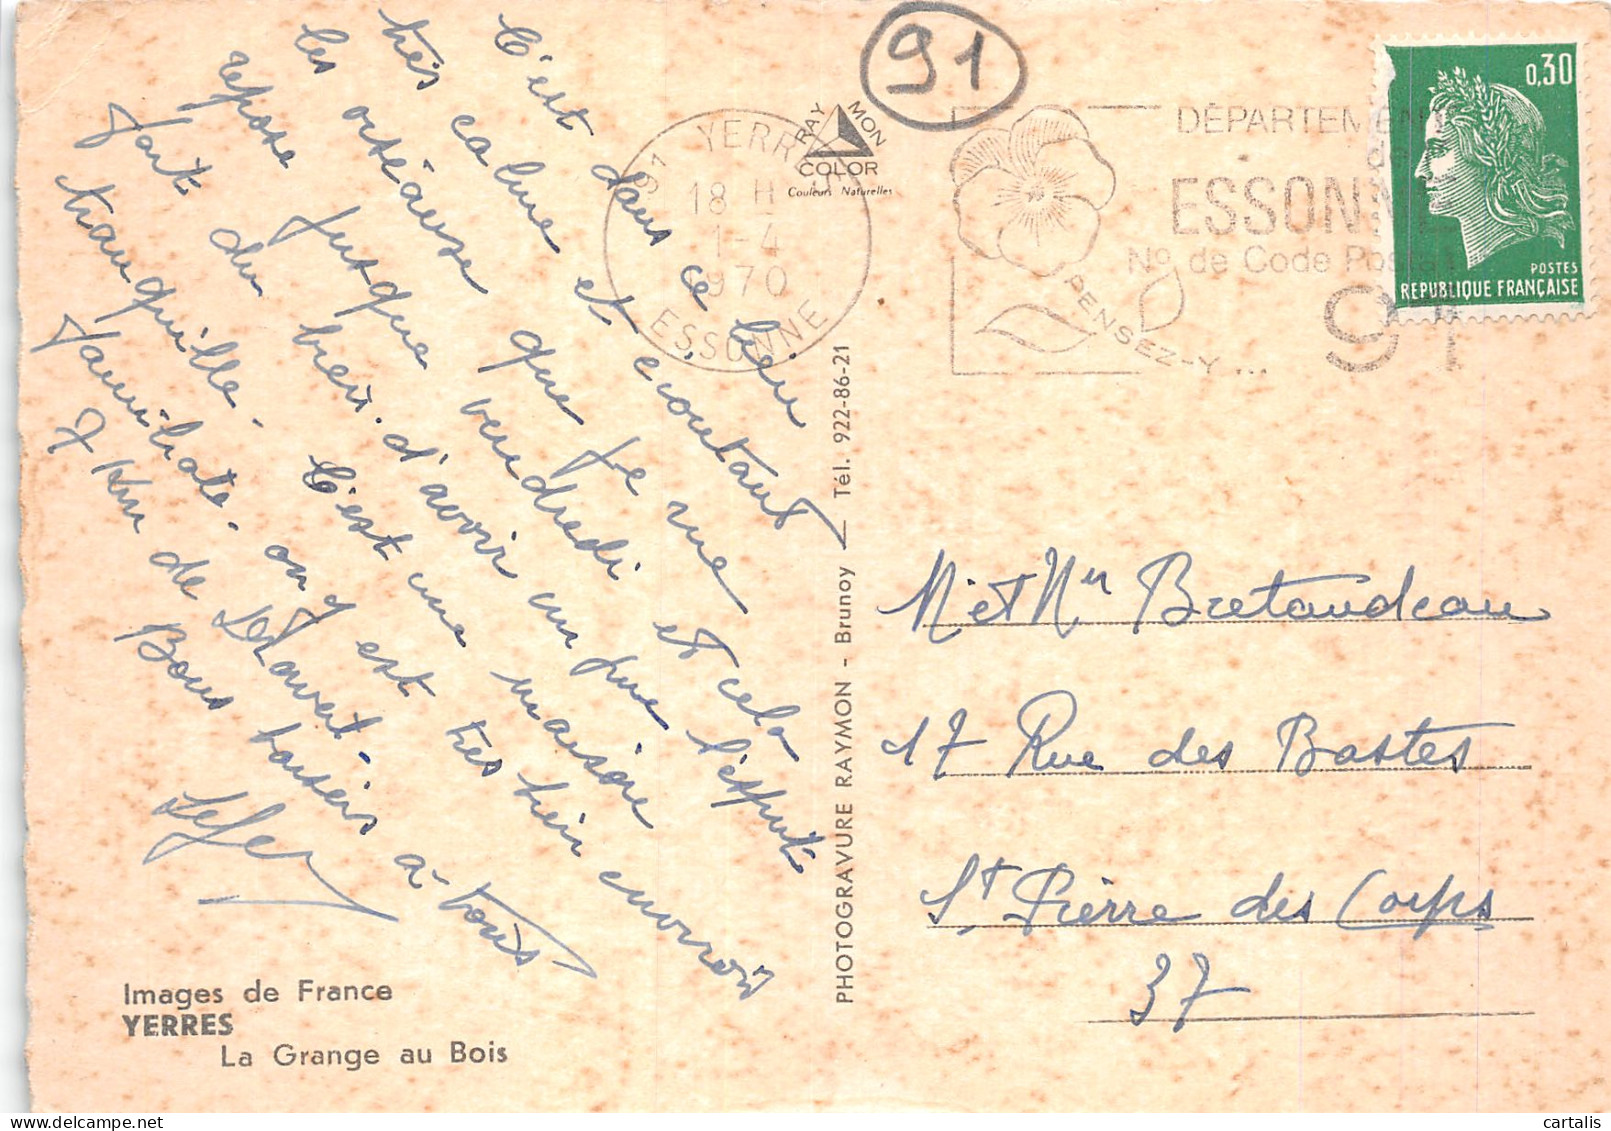 C'est dans ce lieu
très calme et écoutant
les oiseaux que je me
repose jusque vendredi et cela
fait du bien d'avoir un peu l'esprit
tranquille. C'est une maison
familiale. on y est très bien environ
7 km de Draveil.
Bons baisers a tous
91
RAYMON
COLOR
Couleurs Naturelles
91 YERRES
18 H
1-4
1970
ESSONNE
DÉPARTEMENT
de
ESSONNE
No de Code Postal
91
PENSEZ-Y...
0,30
POSTES
REPUBLIQUE FRANÇAISE
PHOTOGRAVURE RAYMON - Brunoy — Tél. 922-86-21
M et Mme Bretaudeau
17 Rue des Bastes
St Pierre des Corps
37
Images de France
YERRES
La Grange au Bois
cartalis